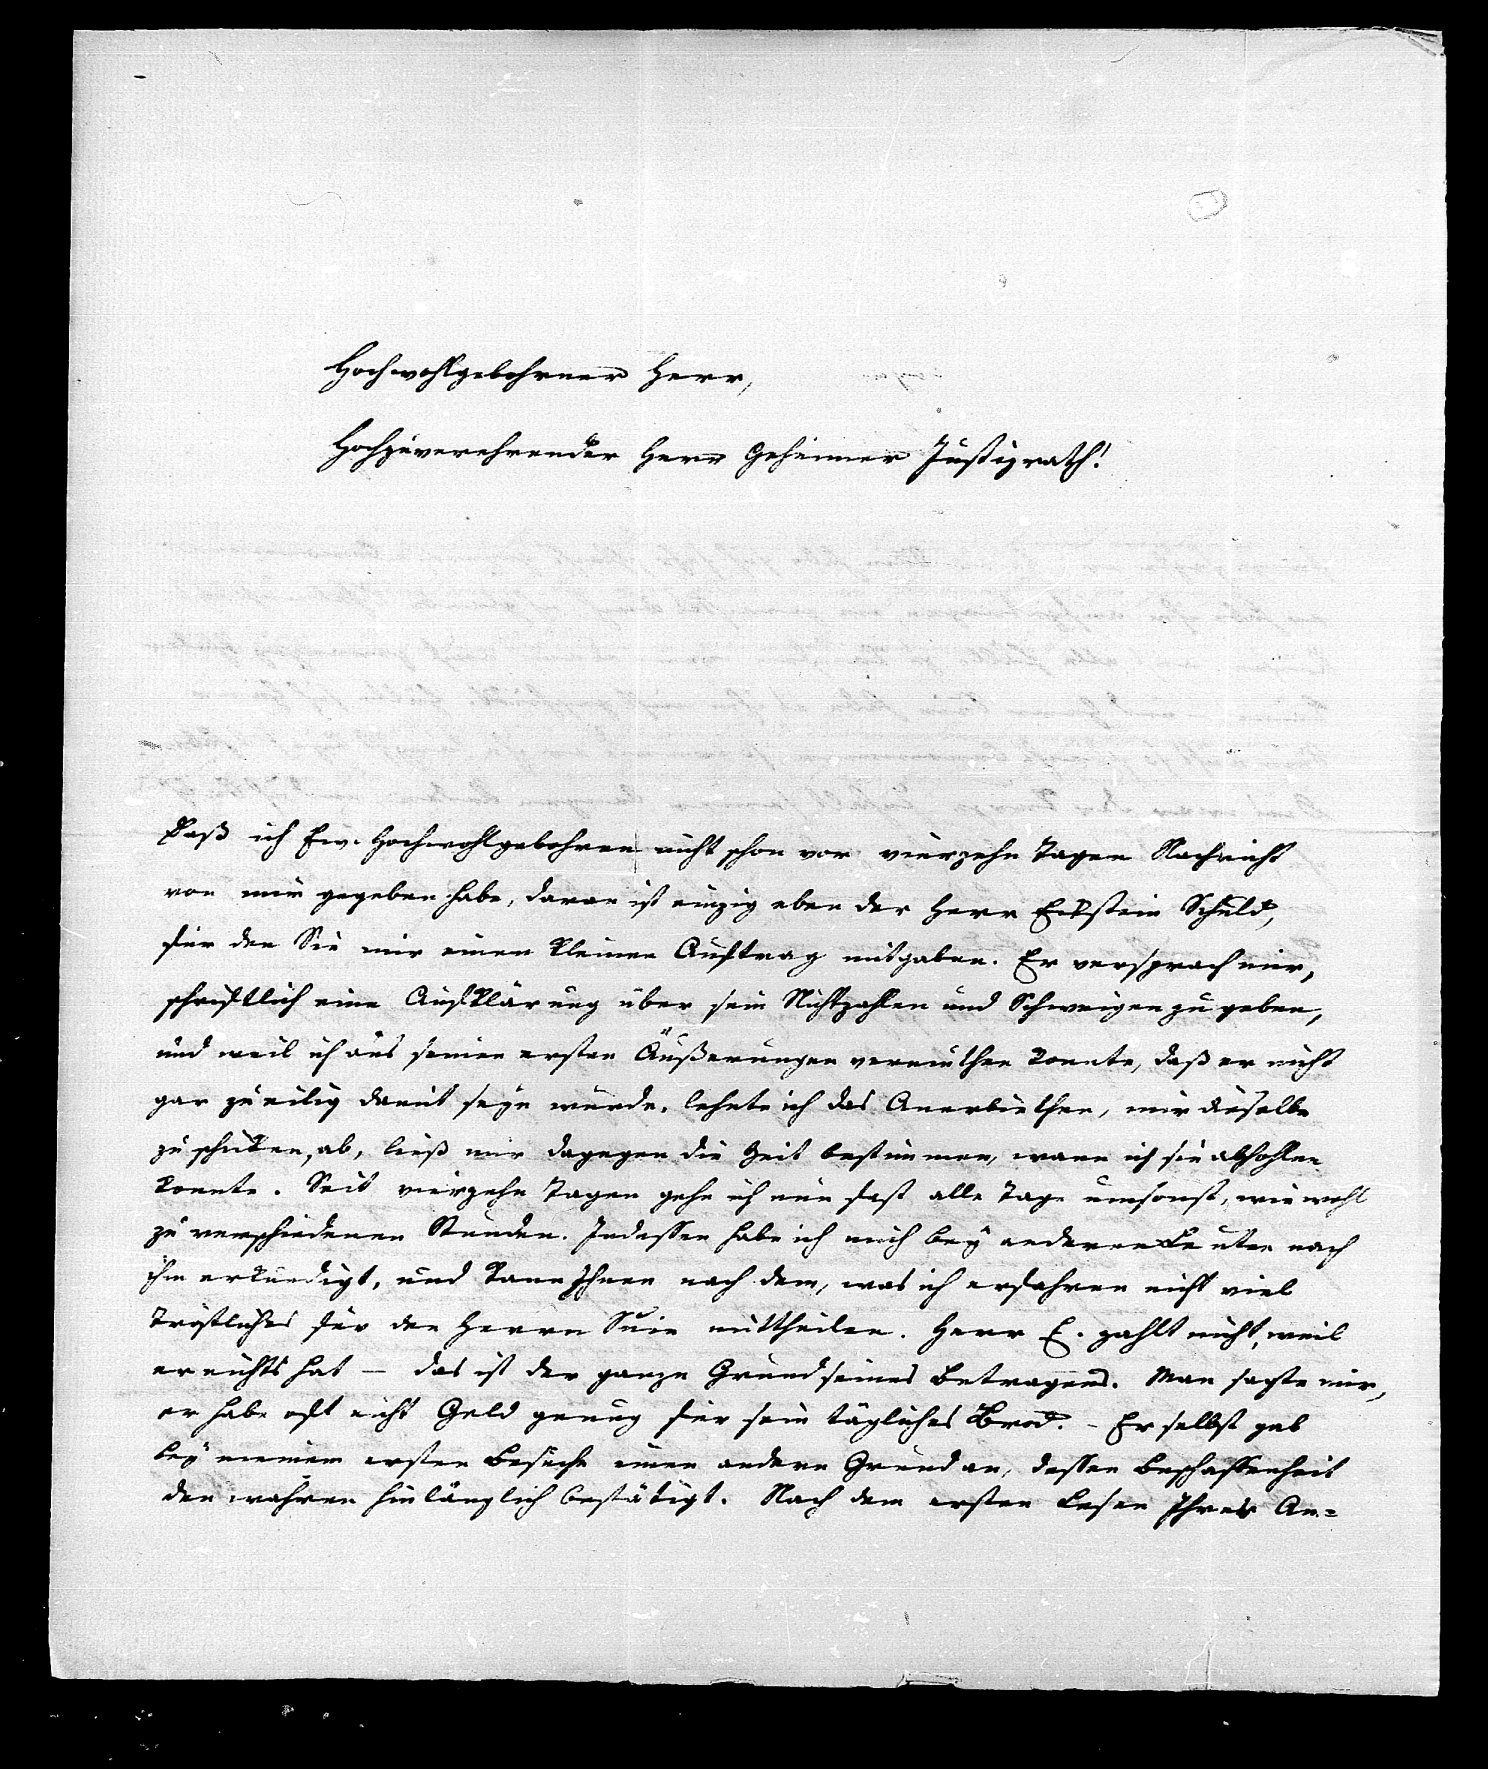 Hochwohlgebohrner Herr,
Hochzuverehrender Herr Geheimer Justizrath!
Daß ich Ew. Hochwohlgebohren nicht schon vor vierzehn Tagen Nachricht
von mir gegeben habe, daran ist einzig eben der Herr Eckstein Schuld,
für den Sie mir einen kleinen Auftrag mitgaben. Er versprach mir,
schriftlich eine Aufklärung über sein Nichtzahlen und Schweigen zu geben,
und weil ich aus seinen ersten Äußerungen vermuthen konnte, daß er nicht
gar zu eilig damit seyn würde, lehnte ich das Anerbiethen, mir dieselbe
zu schicken, ab, ließ mir dagegen die Zeit bestimmen, wann ich sie abhohlen
konnte. Seit vierzehn Tagen gehe ich nun fast alle Tage umsonst, wiewohl
zu verschiedenen Stunden. Indessen habe ich mich bey anderen Leuten nach
ihm erkundigt, und kann Ihnen nach dem, was ich erfahren nicht viel
Tröstliches für den Herrn mittheilen. Herr E. zahlt nicht, weil
er nichts hat — das ist der ganze Grund seines Betragens. Man sagte mir,
er habe oft nicht Geld genug für sein tägliches Brod. – Er selbst gab
bey meinem ersten Besuche einen andern Grund an, dessen Beschaffenheit
den wahren hinlänglich bestätigt. Nach dem ersten Lesen Ihres An=